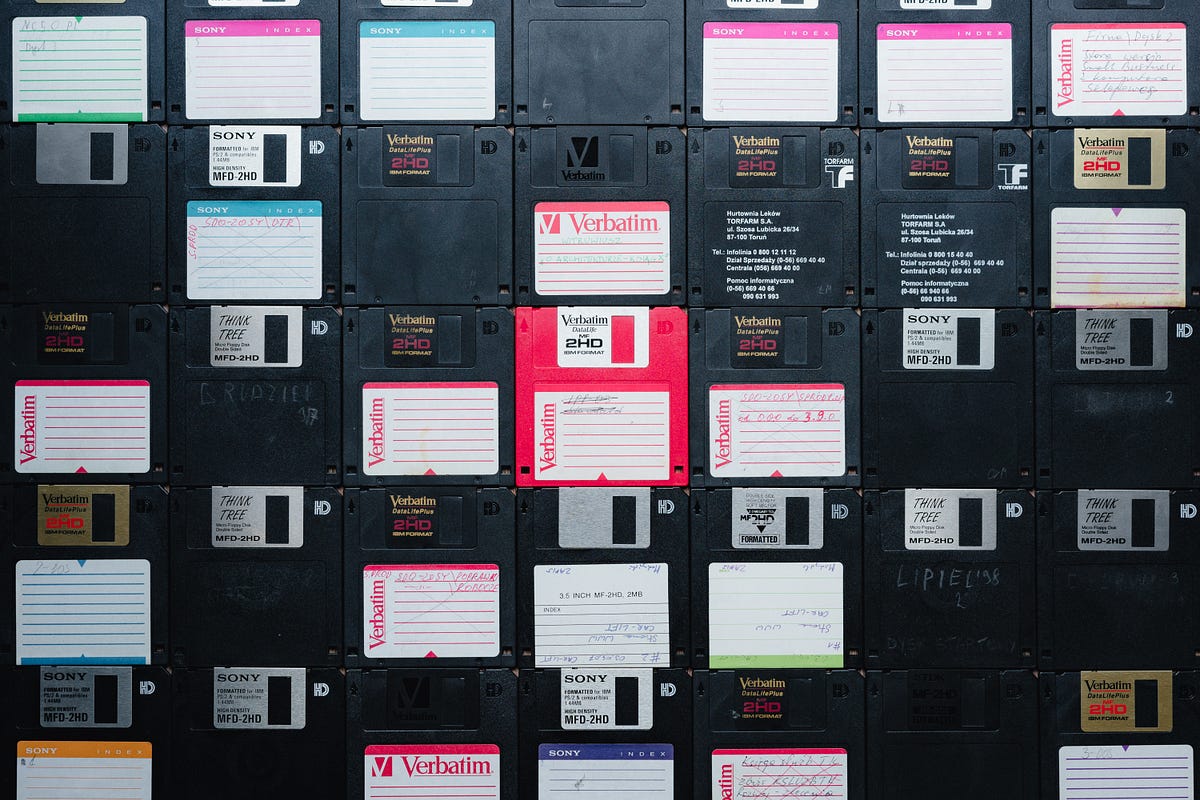 SONY INDEX
SONY INDEX
SONY INDEX
SONY INDEX
Verbatim
Firma\Dysk 2
Stara wersja
Small Business
z komputera
Sklepowego
SONY
FORMATTED for IBM
PS/2 & compatibles
1.44MB
HIGH DENSITY
MFD-2HD
HD
SONY INDEX
Verbatim
DataLifePlus
MF 2HD
IBM FORMAT
HD
Verbatim
HD
Verbatim
WITRUWIUSZ
Verbatim
DataLifePlus
MF 2HD
IBM FORMAT
HD
TORFARM
Hurtownia Leków
TORFARM S.A
ul. Szosa Lubicka 26/34
87-100 Toruń
Tel.: Infolinia 0 800 12 11 12
Dział Sprzedaży (0-56) 669 40 40
Centrala (056) 669 40 00
Pomoc informatyczna
(0-56) 669 40 66
090 631 993
Verbatim
DataLifePlus
MF 2HD
IBM FORMAT
HD
TORFARM
Hurtownia Leków
TORFARM S.A.
ul. Szosa Lubicka 26/34
87-100 Toruń
Tel.: Infolinia 0 800 15 40 40
Dział sprzedaży (0-56) 669 40 40
Centrala (0-56) 669 40 00
Pomoc informatyczna
(0-56) 66 940 66
090 631 993
Verbatim
DataLifePlus
MF 2HD
IBM FORMAT
Verbatim
DataLifePlus
MF 2HD
IBM FORMAT
Verbatim
THINK
TREE
Micro Floppy Disk
Double Sided
MFD-2HD
HD
GRUDZIEŃ
97
Verbatim
DataLifePlus
MF 2HD
IBM FORMAT
HD
Verbatim
Verbatim
DataLife
MF 2HD
IBM FORMAT
HD
Verbatim
Verbatim
DataLifePlus
MF 2HD
IBM FORMAT
HD
Verbatim
od 000 do 3.9.0
SONY
FORMATTED for IBM
PS/2 & compatibles
1.44MB
HIGH DENSITY
MFD-2HD
HD
THINK
TREE
Micro Floppy Disk
Double Sided
MFD-2HD
HD
2
Verbatim
DataLifePlus
MF 2HD
IBM FORMAT
THINK
TREE
Micro Floppy Disk
Double Sided
MFD-2HD
HD
Verbatim
DataLifePlus
MF 2HD
IBM FORMAT
HD
Verbatim
HD
3.5 INCH MF-2HD, 2MB
INDEX
CAR-LIFT
Strona WWW
#2
DOUBLE SIDE
HIGH DENSITY
MF2HD
FORMATTED
HD
CAR-LIFT
Strona WWW
#1
THINK
TREE
Micro Floppy Disk
Double Sided
MFD-2HD
HD
LIPIEC'98
2
THINK
TREE
Micro Floppy Disk
Double Sided
MFD-2HD
HD
SONY
FORMATTED for IBM
PS/2 & compatibles
1.44MB
HIGH DENSITY
MFD-2HD
HD
SONY INDEX
SONY
FORMATTED for IBM
PS/2 & compatibles
1.44MB
HIGH DENSITY
MFD-2HD
HD
Verbatim
Verbatim
SONY
FORMATTED for IBM
PS/2 & compatibles
1.44MB
HIGH DENSITY
MFD-2HD
HD
SONY INDEX
Verbatim
DataLifePlus
MF 2HD
IBM FORMAT
HD
Verbatim
Verbatim
DataLifePlus
MF 2HD
IBM FORMAT